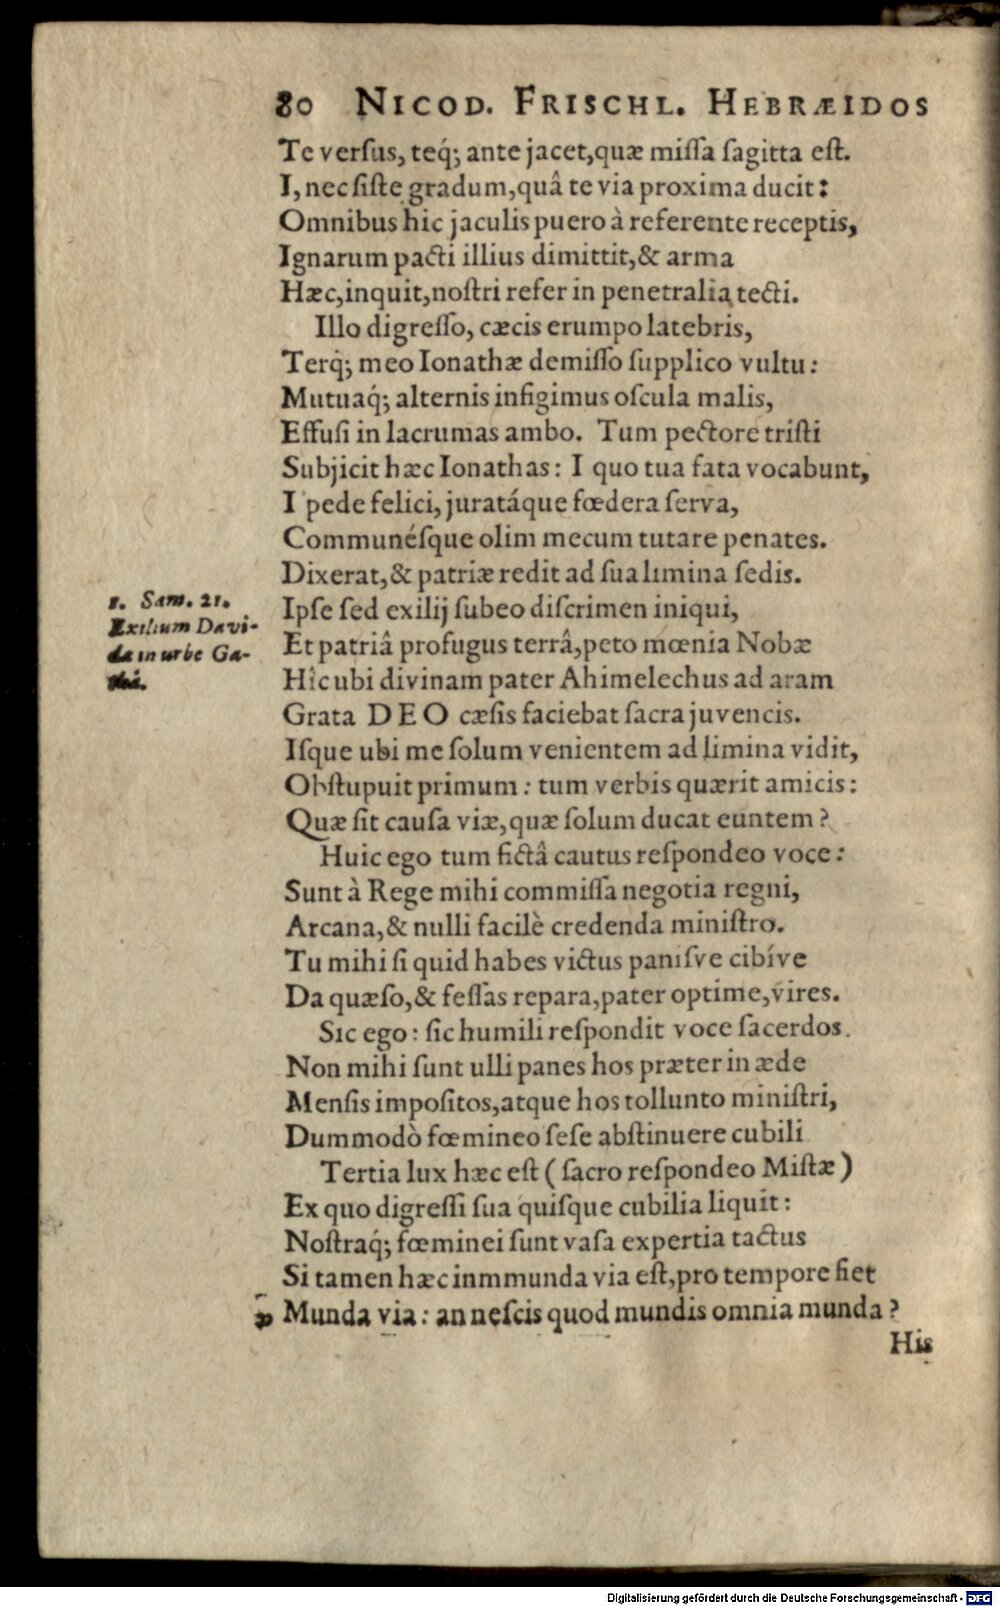 80 NICOD. FRISCHL. HEBRÆIDOS
Te verſus, teq́; ante jacet, quæ miſſa ſagitta eſt.
I, nec ſiſte gradum, quâ te via proxima ducit:
Omnibus hic jaculis puero à referente receptis,
Ignarum pacti illius dimittit, & arma
Hæc, inquit, noſtri refer in penetralia tecti.
Illo digreſſo, cæcis erumpo latebris,
Terq́; meo Ionathæ demiſſo ſupplico vultu:
Mutuaq́; alternis infigimus oſcula malis,
Effuſi in lacrumas ambo. Tum pectore triſti
Subjicit hæc Ionathas: I quo tua fata vocabunt,
I pede felici, juratáque fœdera ſerva,
Communéſque olim mecum tutare penates.
Dixerat, & patriæ redit ad ſua limina ſedis.
1. Sam. 21.
Exilium Davi-
dis in urbe Ga-
thâ.
Ipſe ſed exilij ſubeo diſcrimen iniqui,
Et patriâ profugus terrâ, peto mœnia Nobæ
Hîc ubi divinam pater Ahimelechus ad aram
Grata DEO cæſis faciebat ſacra juvencis.
Iſque ubi me ſolum venientem ad limina vidit,
Obſtupuit primum: tum verbis quærit amicis:
Quæ ſit cauſa viæ, quæ ſolum ducat euntem?
Huic ego tum fictâ cautus reſpondeo voce:
Sunt à Rege mihi commiſſa negotia regni,
Arcana, & nulli facilè credenda miniſtro.
Tu mihi ſi quid habes victus paniſve cibíve
Da quæſo, & feſſas repara, pater optime, vires.
Sic ego: ſic humili reſpondit voce ſacerdos.
Non mihi ſunt ulli panes hos præter in æde
Menſis impoſitos, atque hos tollunto miniſtri,
Dummodò fœmineo ſeſe abſtinuere cubili
Tertia lux hæc eſt (ſacro reſpondeo Miſtæ)
Ex quo digreſſi ſua quiſque cubilia liquit:
Noſtraq́; fœminei ſunt vaſa expertia tactus
Si tamen hæc inmmunda via eſt, pro tempore fiet
Munda via: an neſcis quod mundis omnia munda?
His
Digitalisierung gefördert durch die Deutsche Forschungsgemeinschaft - DFG